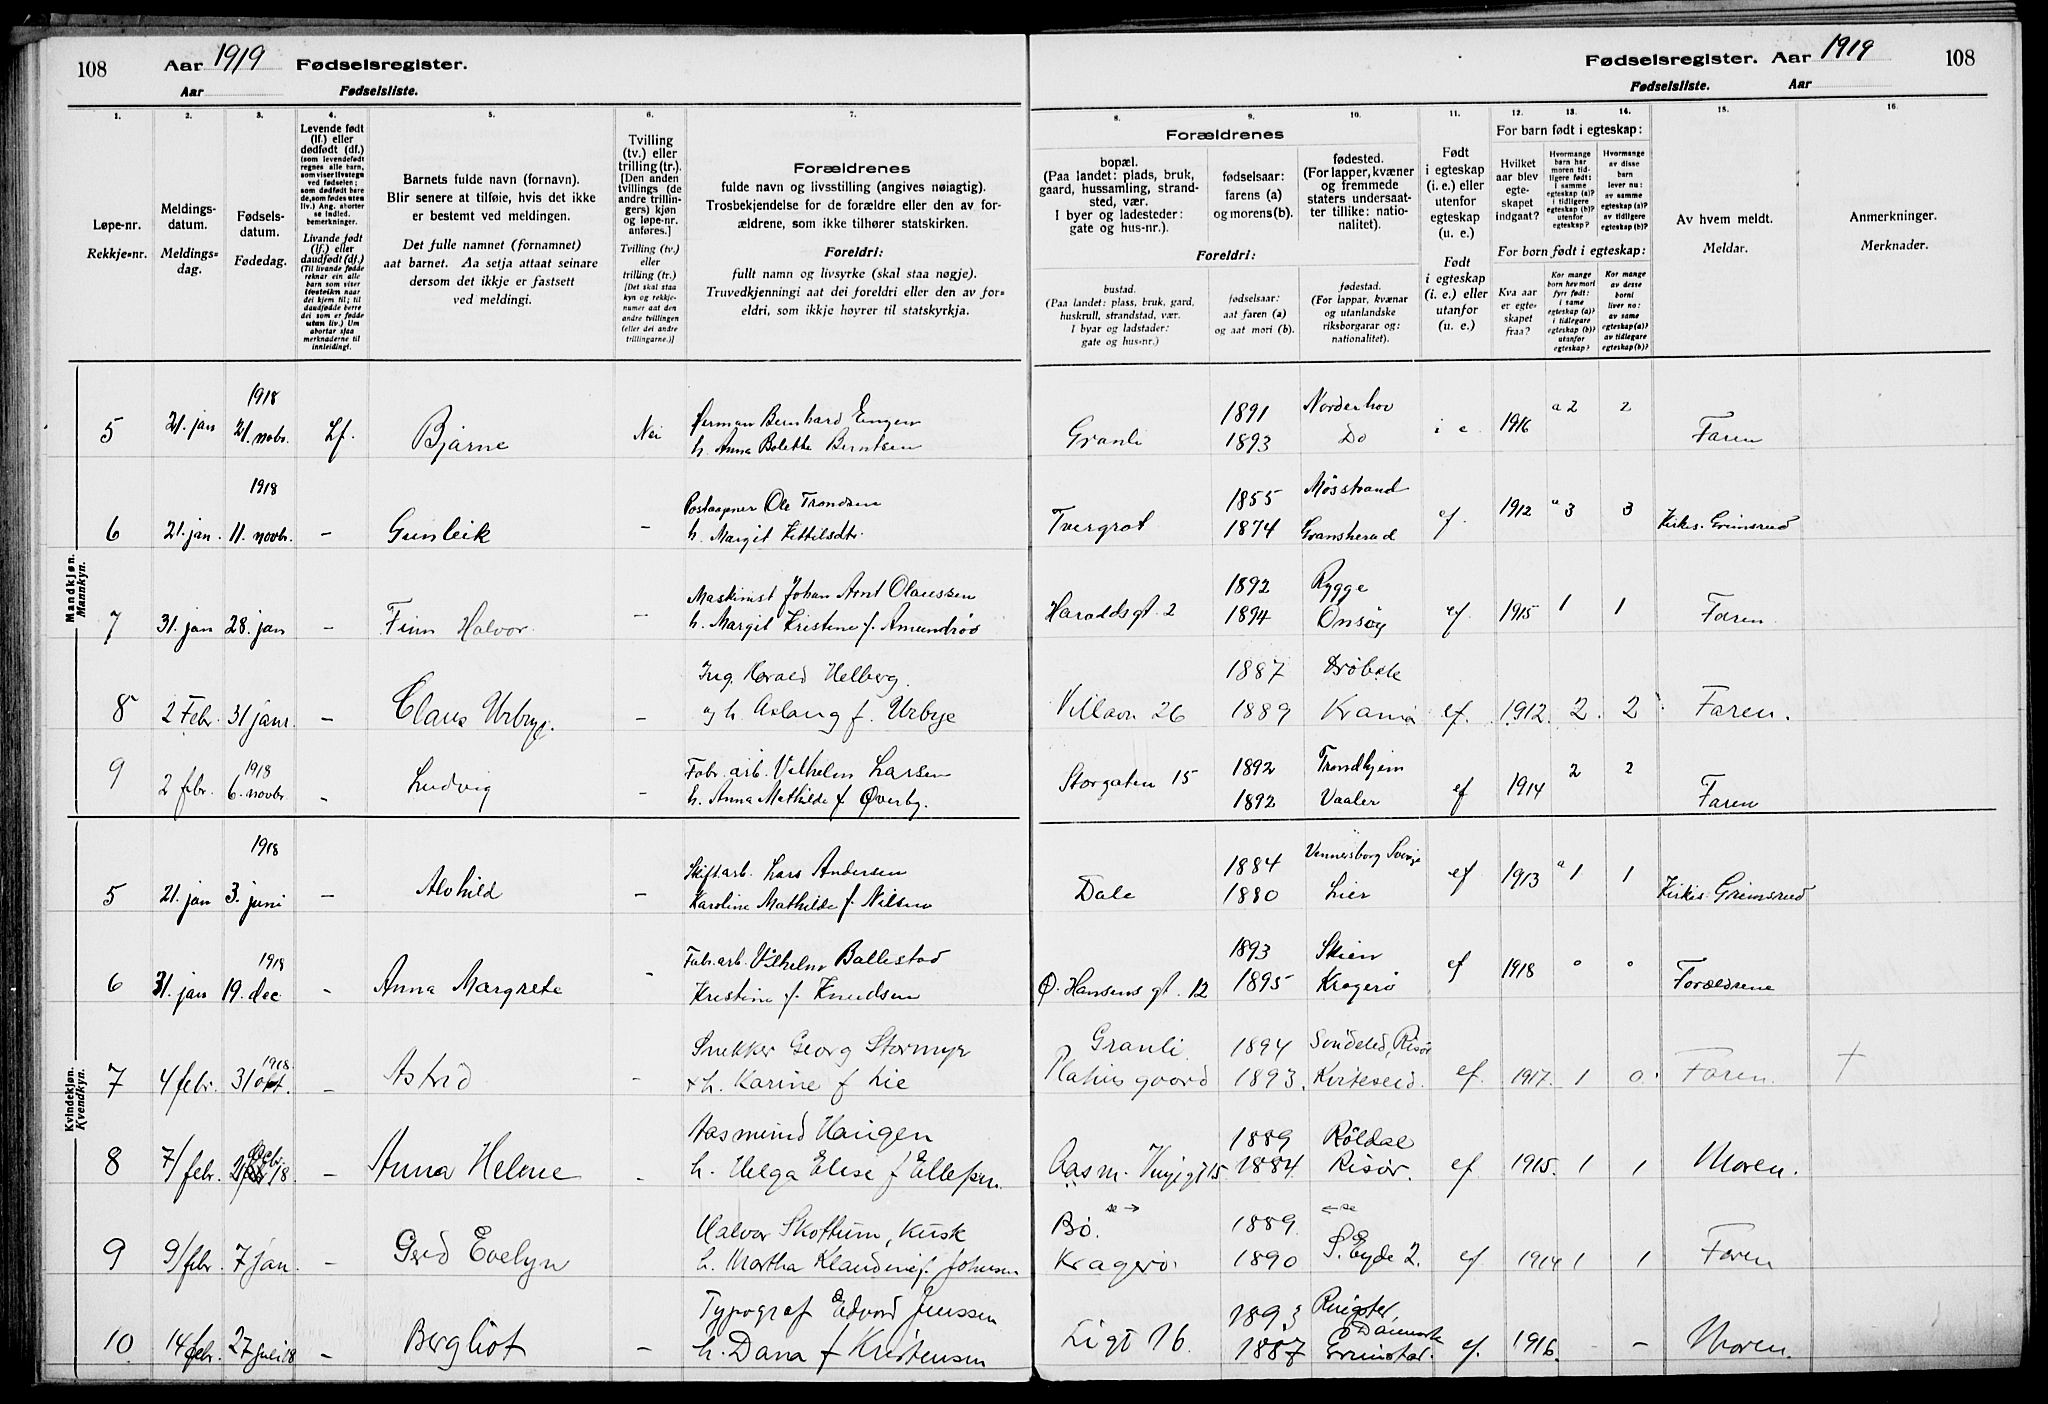 108 Aar 1919 Fødselsregister.
Aar Fødselsliste.
1. 2. 3. 4. 5. 6. 7.
Løpe-nr.
Rekkje=nr.
Meldings-
datum.
Meldings=
dag.
Fødsels-
datum.
Fødedag.
Levende født
(lf.) eller
dødfødt (df.)
(som levendefødt
regnes alle barn,
som viser livstegn
ved fødselen;
som dødfødt bare
de, som fødes uten
liv.) Ang. aborter
se indled.
bemerkninger.
Livande født
(lf.) eller
daudfødt (df.)
(Til livande fødde
reknar ein alle
barn som viser
livsteikn naar
dei kjem til; til
daudfødde berre
dei som er fødde
utan liv.) Um
abortar sjaa
merknaderne til
innleidingi.
Barnets fulde navn (fornavn).
Blir senere at tilføie, hvis det ikke
er bestemt ved meldingen.
Det fulle namnet (fornamnet)
aat barnet. Aa setja attaat seinare
dersom det ikkje er fastsett
ved meldingi.
Tvilling
(tv.) eller
trilling (tr.).
[Den anden
tvillings (de
andre trillin-
gers) kjøn
og løpe-nr.
anføres.]
Tvilling (tv.)
eller
trilling (tr.)
[Det skal staa
kyn og rekkje-
numer aat den
andre tvillingen
(eller dei andre
trillingarne.)]
Forældrenes
fulde navn og livsstilling (angives nøiagtig).
Trosbekjendelse for de forældre eller den av for-
ældrene, som ikke tilhører statskirken.
Foreldri:
fullt namn og livsyrke (skal staa nøgje).
Truvedkjenningi aat dei foreldri eller den av for=
eldri, som ikkje høyrer til statskyrkja.
Mandkjøn.
Mannkyn.
1918
5 21. jan 21. novbr. Lf. Bjarne Nei Herman Bernhard Engen
h. Anna Bolette Berntsen
1918
6 21. jan. 11. novbr. - Gunleik - Postaapner Ole Trondsen
h. Margit Kittilsdtr.
7 31. jan 28. jan - Finn Halvor - Maskinist Johan Arnt Olaussen
h. Margit Kristine f. Amundrød
8 2 Febr. 31 janr. - Claus Urbye. - Ing. Harald Helberg.
og h. Aslaug f. Urbye
1918
9 2 febr. 6. novbr - Ludvig Fabr. arb. Vilhelm Larsen
h. Anna Mathilde f Øverby.
Kvindekjøn.
Kvendkyn.
1918
5 21. jan 3. juni - Alvhild - Skiftarb. Lars Andersen
Karoline Mathilde f. Nilsen
1918
6 31. jan 19. dec - Anna Margrete - Fabr. arb. Vilhelm Ballestad
Kristine f. Knudsen
1918.
7 4 febr. 31 okt. - Astrid - Snekker Georg Stormyr
+ h. Karine f Lie
8 7/febr. 21 decbr. 18. - Anna Helene - Aasmund Haugen
h. Helga Elise f Ellefsen.
9 9/febr. 7 jan. - Gerd Evelyn Halvor Skottum, Kusk
h. Martha Klaudine f. Johnsen
10. 14 febr. 27 juli 18 - Bergliot - Typograf Edvard Jenssen
h. Dana f Kristensen
Fødselsregister. Aar 1919 108
Fødselsliste. Aar
8. 9. 10. 11. 12. 13. 14. 15. 16.
Forældrenes
bopæl.
(Paa landet: plads, bruk,
gaard, hussamling, strand-
sted, vær.
I byer og ladesteder:
gate og hus-nr.).
fødselsaar:
farens (a)
og morens (b).
fødested.
(For lapper, kvæner
og fremmede
staters undersaat-
ter tillike: natio-
nalitet).
Foreldri:
bustad.
(Paa landet: plass, bruk, gard,
huskrull, strandstad, vær.
I byar og ladstader:
gate og hus=nr.)
fødselsaar:
aat faren (a)
og aat mori (b).
fødestad.
(For lappar, kvænar
og utanlandske
riksborgarar og:
nationalitet).
Født
i egteskap
(i. e.) eller
utenfor
egteskap
(u. e.)
Født
i egteskap
(i. e.) eller
utanfor
(u. e.)
For barn født i egteskap:
Hvilket
aar blev
egte-
skapet
indgaat?
Hvormange
barn har
moren tid-
ligere født:
i samme
egteskap (a)?
i tidligere
egteskap (b)?
utenfor
egteskap?
Hvormange
av disse
barn
lever nu:
av samme
egteskap (a)?
av tidligere
egteskap (b)?
For born født i egteskap:
Kva aar
er egte-
skapet
fraa?
Kor mange
born hev mori
fyrr født:
i same
egteskap (a)?
i tidlegare
egteskap (b)?
utanfor
egteskap?
Kor mange
av desse
borni
liver no:
av same
egteskap (a)?
av tidlegare
egteskap (b)?
Av hvem meldt.
Meldar.
Anmerkninger.
Merknader.
1891 Norderhov a 2 2
Granli 1893 Do i e. 1916 Faren
1855 Møsstrand
Tvergrot 1874 Gransherad ef. 1912 a 3 3 Kirkes. Grimsrud
1892 Rygge
Haraldsgt. 2 1894 Onsøy ef. 1915 1 1 Faren.
1887 Drøbak
Villavn 26 1889 Kr.ania ef. 1912. 2. 2. Faren.
1892 Trondhjem 2 2
Storgaten 15 1892 Vaaler ef 1914 Faren
1884 Vennersborg Sverige
Dale 1880 Lier ef 1913 a 1 1 Kirkes. Grimsrud
1893 Skien
Ø. Hansens gt. 12 1895 Kragerø ef 1918 0 0 Forældrene
Granli. 1894 Søndeled, Risør
gaard 1893. Kviteseid. ef. 1917. 1 0. Faren. +
1889 Røldal
Aasm. Vinjegt 15 1884. Risør. ef. 1915. 1 1 Moren.
Bø. se → 1889. ← se
Kragerø. 1890 S. Eyde 2. ef 1914 1 1 Faren
1893 Ringsted Danmark
Ligt 16. 1887 Grimstad. ef. 1916. - - Moren.